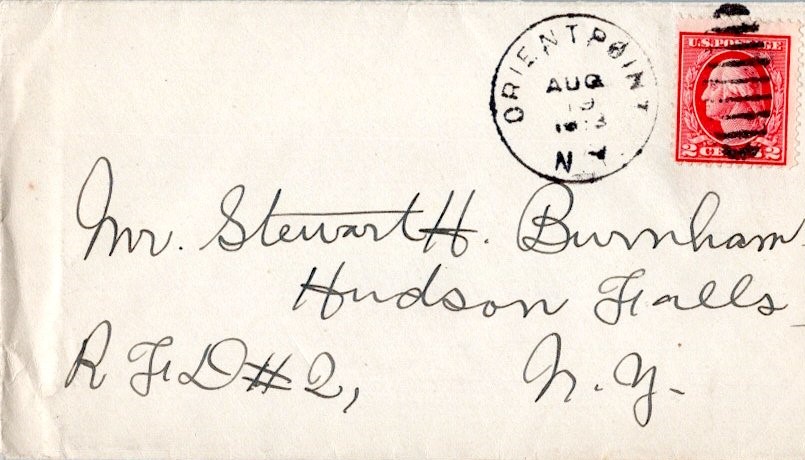 ORIENT POINT
AUG
19
N.Y.
U.S. POSTAGE
2 CENTS 2
Mr. Stewart H. Burnham
Hudson Falls
R F D # 2, N. Y.